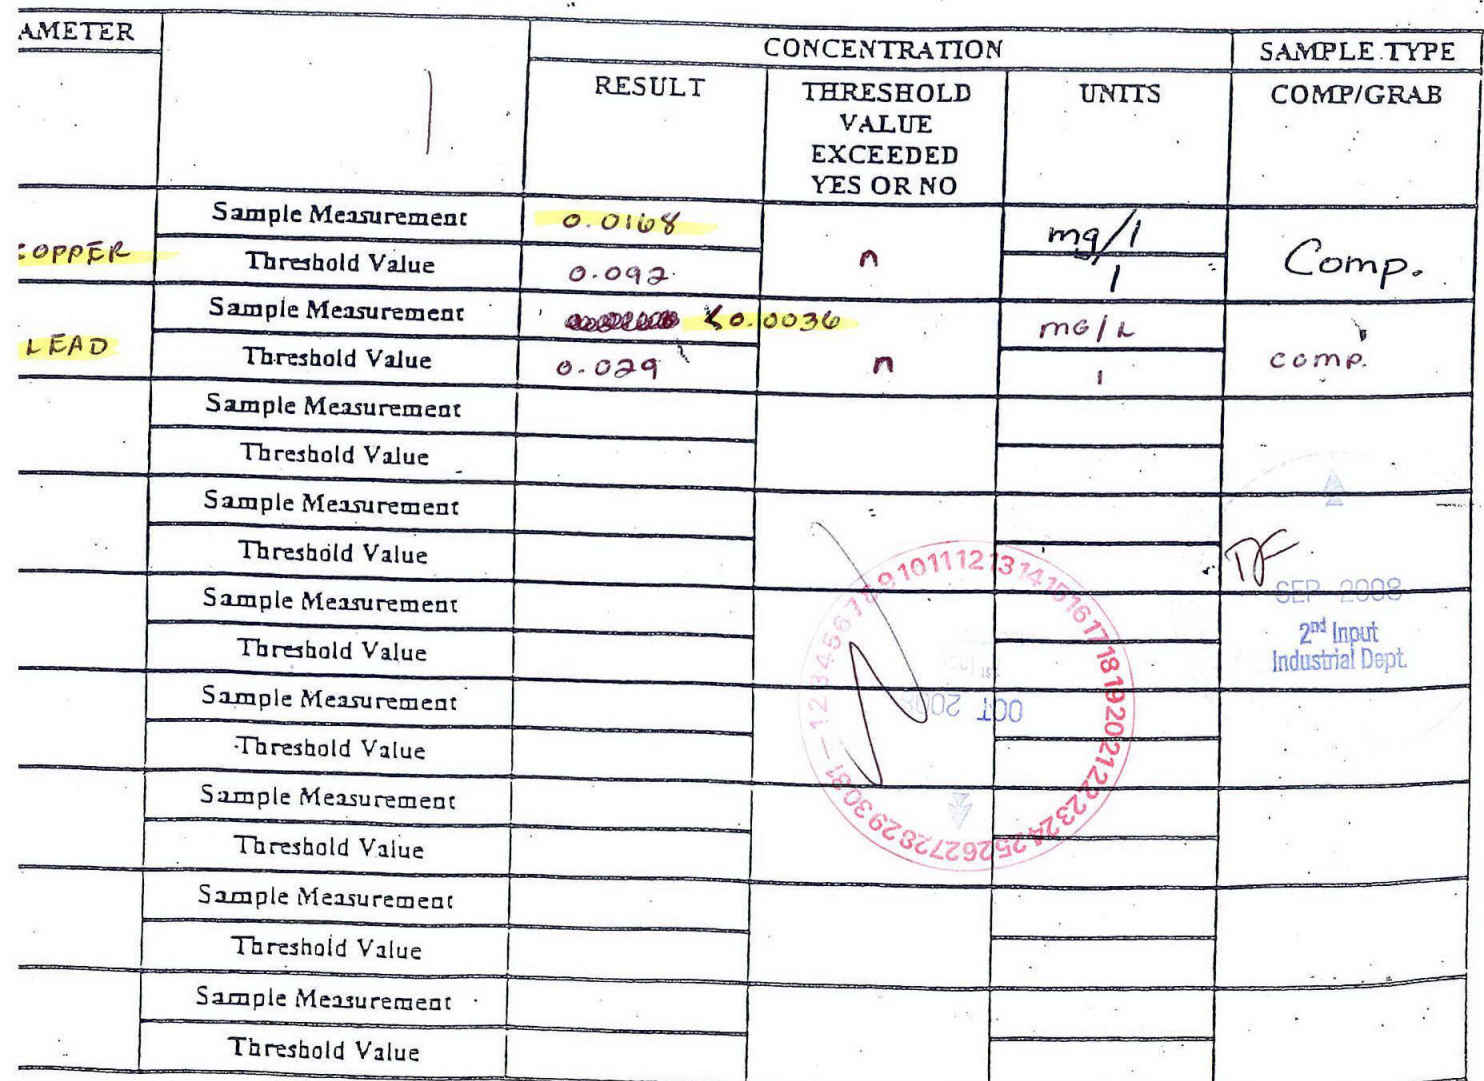 AMETER
CONCENTRATION
SAMPLE TYPE
RESULT
THRESHOLD
VALUE
EXCEEDED
YES OR NO
UNITS
COMP/GRAB
COPPER
Sample Measurement
0.0168
n
mg/l
Comp.
Threshold Value
0.092
LEAD
Sample Measurement
<0.0036
MG/L
comp.
Threshold Value
0.029
n
Sample Measurement
Threshold Value
Sample Measurement
Threshold Value
Sample Measurement
Threshold Value
Sample Measurement
Threshold Value
Sample Measurement
Threshold Value
Sample Measurement
Threshold Value
Sample Measurement
Threshold Value
SEP 2008
2nd Input
Industrial Dept.
1 2 3 4 5 6 7 8 9 10 11 12 13 14 15 16 17 18 19 20 21 22 23 24 25 26 27 28 29 30 31
OCT 2008